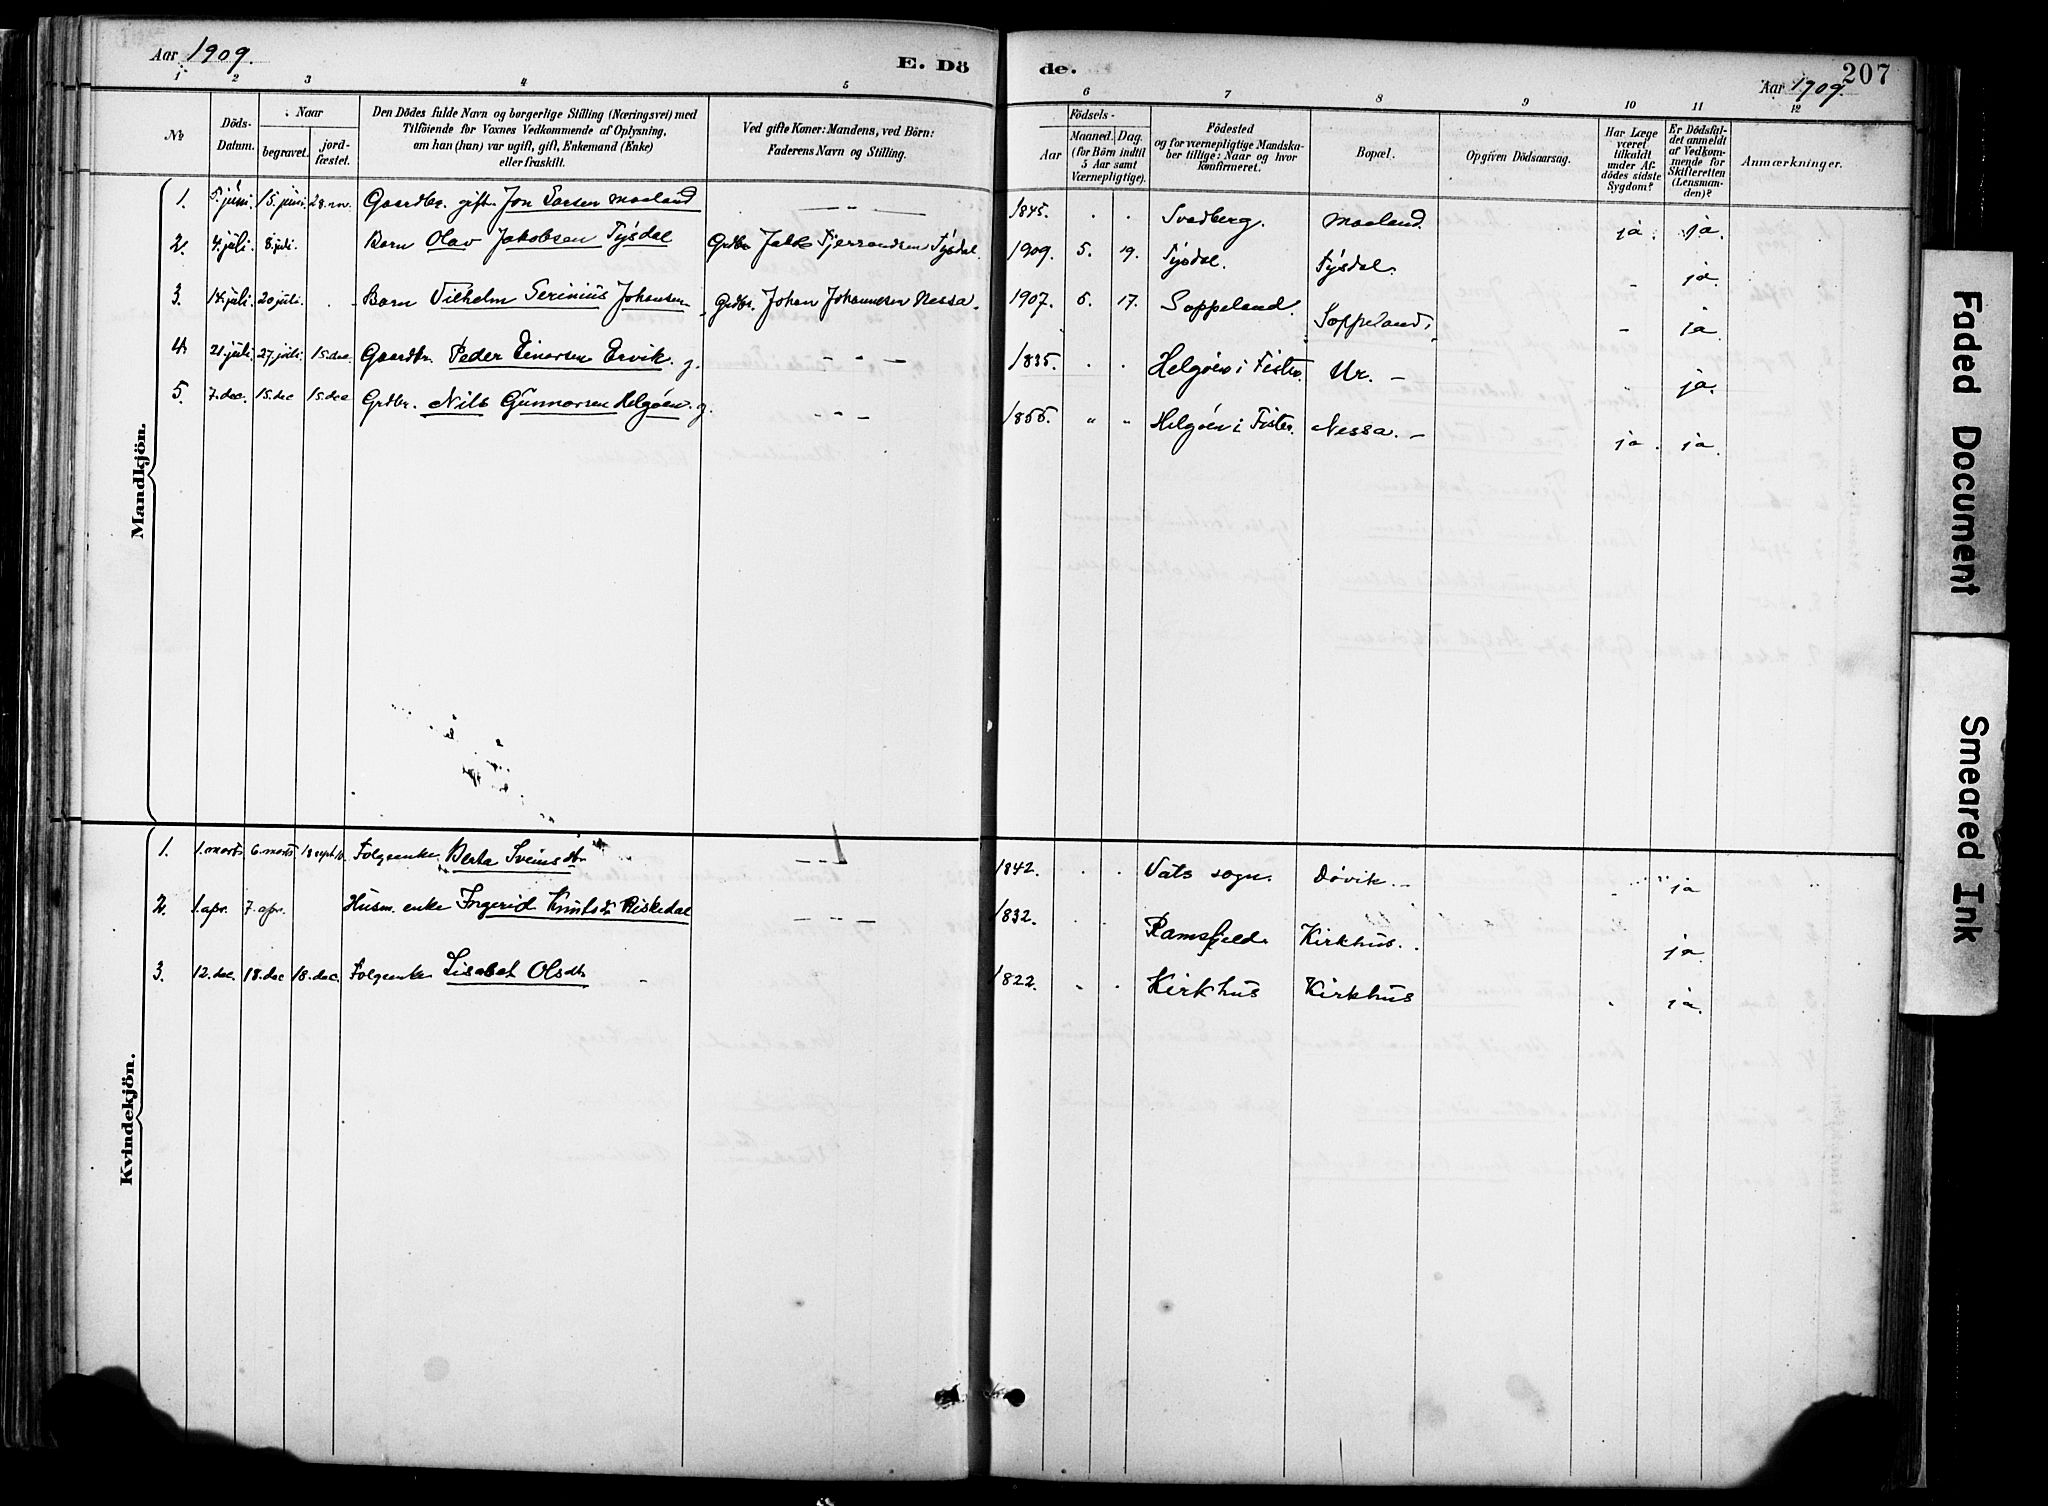 Aar 1909. E. Dö de. Aar 1909. 207
1 2 3 4 5 6 7 8 9 10 11 12
No Döds-Datum. Naar begravet. jord-fæstet. Den Dödes fulde Navn og borgerlige Stilling (Næringsvei) med Tilföiende for Voxnes Vedkommende af Oplysning, om han (hun) var ugift, gift, Enkemand (Enke) eller fraskilt. Ved gifte Koner: Mandens, ved Börn: Faderens Navn og Stilling. Födsels- Aar Maaned. Dag. (for Börn indtil 5 Aar samt Værnepligtige). Födested og for værnepligtige Mandskaber tillige: Naar og hvor Konfirmeret. Bopæl. Opgiven Dödsaarsag. Har Læge været tilkaldt under Afdödes sidste Sygdom? Er Dödsfaldet anmeldt af Vedkommende for Skifteretten (Lensmanden)? Anmærkninger.
Mandkjön.
1. 5. juni 15. juni 28. nov. Gaardbr. gift Jon Larsen Maaland — — — 1845. . . Svadberg. Maaland. ja. ja.
2. 4. juli 8. juli. Barn Olav Jakobsen Tysdal Grdbr. Jakob Tjerrandsen Tysdal. 1909. 5. 19. Tysdal. Tysdal. ja
3. 14. juli 20 juli. . - Barn Vilhelm Serinius Johansen Grdbr. Johan Johannesen Nessa. 1907. 5. 17. Soppeland. Soppeland. - ja
4. 21. juli. 27. juli. 15. dec. Gaardbr. Peder Einarsen Ervik. g. - - - 1835. . . Helgöen i Fister. Ur. - ja.
5. 7. dec. 15. dec 15. dec Grdbr. Nils Gunnarsen Helgöen. g. - - - 1855. " " Helgöen i Fister. Nessa. - ja. ja.
Kvindekjön.
1. 1. marts 6. marts 18 sept. Folgeenke Berta Sveinsdtr. - - - 1842. . . Vats sogn. Dövik. - ja
2. 1. apr. 7. apr. Husm. enke Ingerid Knutsdtr. Riskedal - - - 1832. . . Ramsfjeld. Kirkhus. ja.
3. 12. dec. 18. dec 18. dec. Folgeenke Lisabet Olsdtr. - 1822. . . Kirkhus Kirkhus . ja.
Faded Document
Smeared Ink